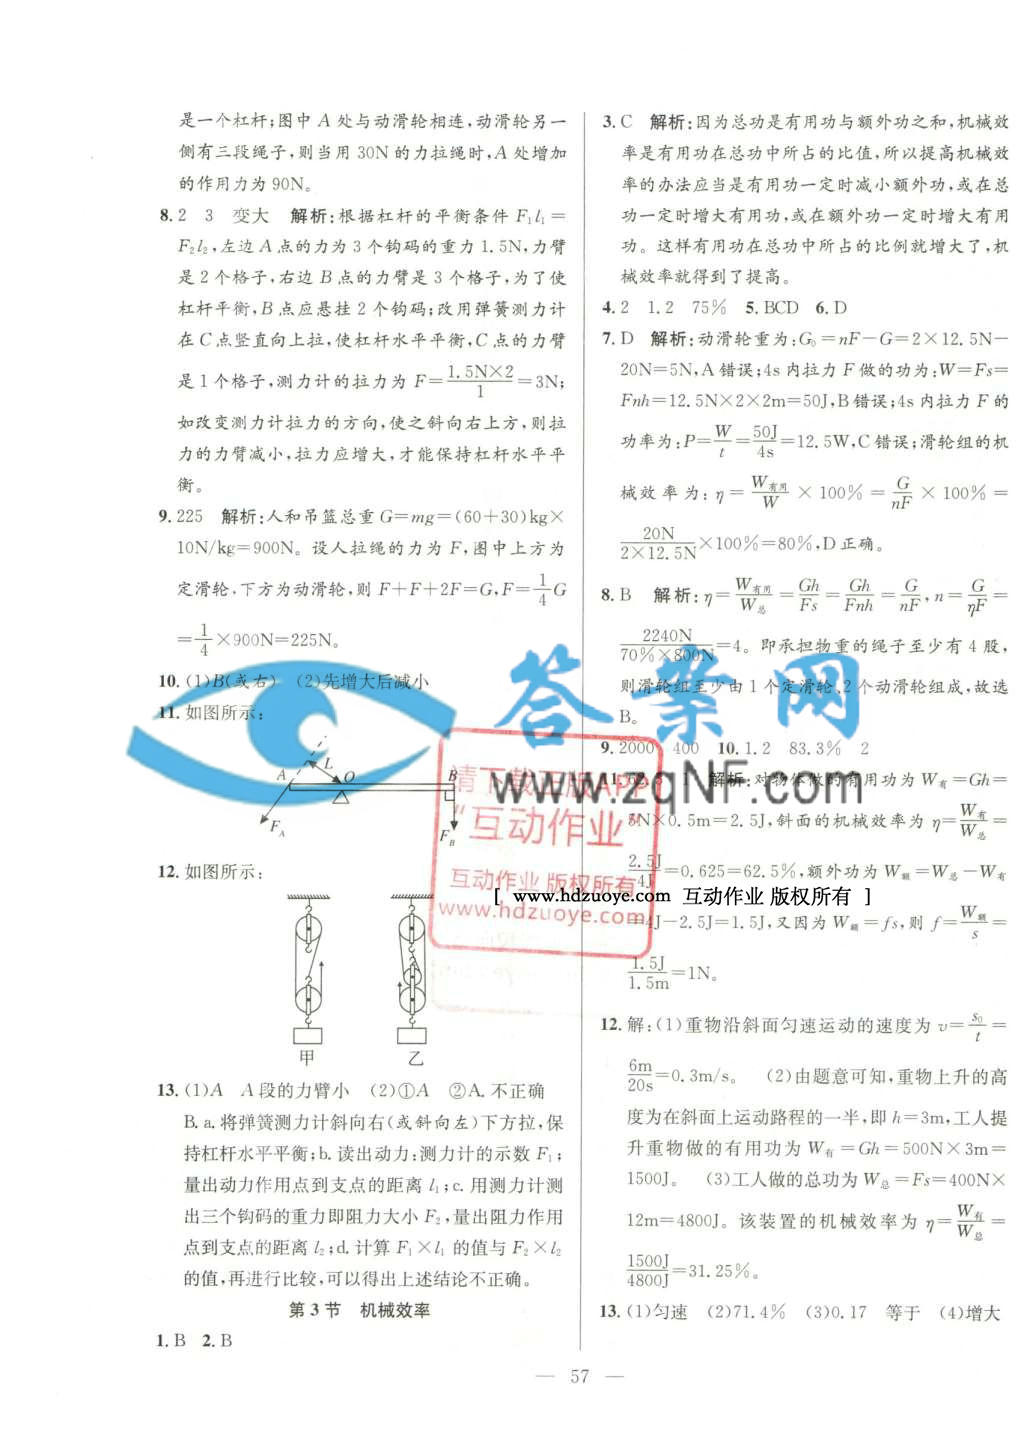 是一个杠杆;图中 A 处与动滑轮相连,动滑轮另一
侧有三段绳子,则当用 30N 的力拉绳时,A 处增加
的作用力为 90N。
8. 2 3 变大 解析:根据杠杆的平衡条件 F₁l₁=
F₂l₂,左边 A 点的力为 3 个钩码的重力 1.5N,力臂
是 2 个格子,右边 B 点的力臂是 3 个格子,为了使
杠杆平衡,B 点应悬挂 2 个钩码;改用弹簧测力计
在 C 点竖直向上拉,使杠杆水平平衡,C 点的力臂
是 1 个格子,测力计的拉力为 F=1.5N×2/1=3N;
如改变测力计拉力的方向,使之斜向右上方,则拉
力的力臂减小,拉力应增大,才能保持杠杆水平平
衡。
9. 225 解析:人和吊篮总重 G=mg=(60+30)kg×
10N/kg=900N。设人拉绳的力为 F,图中上方为
定滑轮,下方为动滑轮,则 F+F+2F=G,F=1/4G
=1/4×900N=225N。
10. (1)B(或右) (2)先增大后减小
11. 如图所示:
A L O B
F_A F_B
12. 如图所示:
甲 乙
13. (1)A A 段的力臂小 (2)①A ②A.不正确
B. a.将弹簧测力计斜向右(或斜向左)下方拉,保
持杠杆水平平衡;b.读出动力:测力计的示数 F₁;
量出动力作用点到支点的距离 l₁;c.用测力计测
出三个钩码的重力即阻力大小 F₂,量出阻力作用
点到支点的距离 l₂;d.计算 F₁×l₁ 的值与 F₂×l₂
的值,再进行比较,可以得出上述结论不正确。
第 3 节 机械效率
1. B 2. B
3. C 解析:因为总功是有用功与额外功之和,机械效
率是有用功在总功中所占的比值,所以提高机械效
率的办法应当是有用功一定时减小额外功,或在总
功一定时增大有用功,或在额外功一定时增大有用
功。这样有用功在总功中所占的比例就增大了,机
械效率就得到了提高。
4. 2 1.2 75% 5. BCD 6. D
7. D 解析:动滑轮重为:G₀=nF-G=2×12.5N-
20N=5N,A 错误;4s 内拉力 F 做的功为:W=Fs=
Fnh=12.5N×2×2m=50J,B 错误;4s 内拉力 F 的
功率为:P=W/t=50J/4s=12.5W,C 错误;滑轮组的机
械效率为:η=W有用/W×100%=G/nF×100%=
20N/2×12.5N×100%=80%,D 正确。
8. B 解析:η=W有用/W总=Gh/Fs=Gh/Fnh=G/nF,n=G/ηF=
2240N/70%×800N=4。即承担物重的绳子至少有 4 股,
则滑轮组至少由 1 个定滑轮、2 个动滑轮组成,故选
B。
9. 2000 400 10. 1.2 83.3% 2
11. 62.5 解析:对物体做的有用功为 W有=Gh=
5N×0.5m=2.5J,斜面的机械效率为 η=W有/W总=
2.5J/4J=0.625=62.5%,额外功为 W额=W总-W有
=4J-2.5J=1.5J,又因为 W额=fs,则 f=W额/s=
1.5J/1.5m=1N。
12. 解:(1)重物沿斜面匀速运动的速度为 v=s₀/t=
6m/20s=0.3m/s。 (2)由题意可知,重物上升的高
度为在斜面上运动路程的一半,即 h=3m,工人提
升重物做的有用功为 W有=Gh=500N×3m=
1500J。 (3)工人做的总功为 W总=Fs=400N×
12m=4800J。该装置的机械效率为 η=W有/W总=
1500J/4800J=31.25%。
13. (1)匀速 (2)71.4% (3)0.17 等于 (4)增大
— 57 —
答案网
www.zqnf.com
请下载正版APP
"互动作业"
互动作业 版权所有
www.hdzuoye.com
[ www.hdzuoye.com 互动作业 版权所有 ]